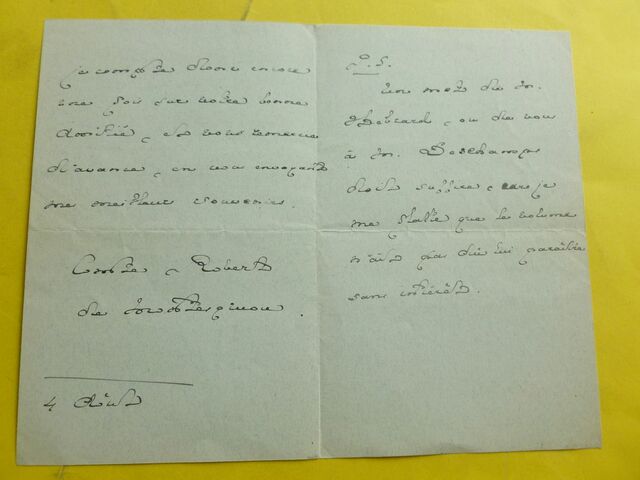 je compte donc encore
une fois sur votre bonne
amitié, et vous remercie
d'avance, en vous envoyant
mes meilleurs souvenirs.
Comte, Robert
de Montesquiou.
4 Août
P.S.
Un mot de M.
Hébrard, ou de vous
à M. Deschamps
doit suffire, car je
me flatte que le volume
n'ait pas dû lui paraître
sans intérêt.